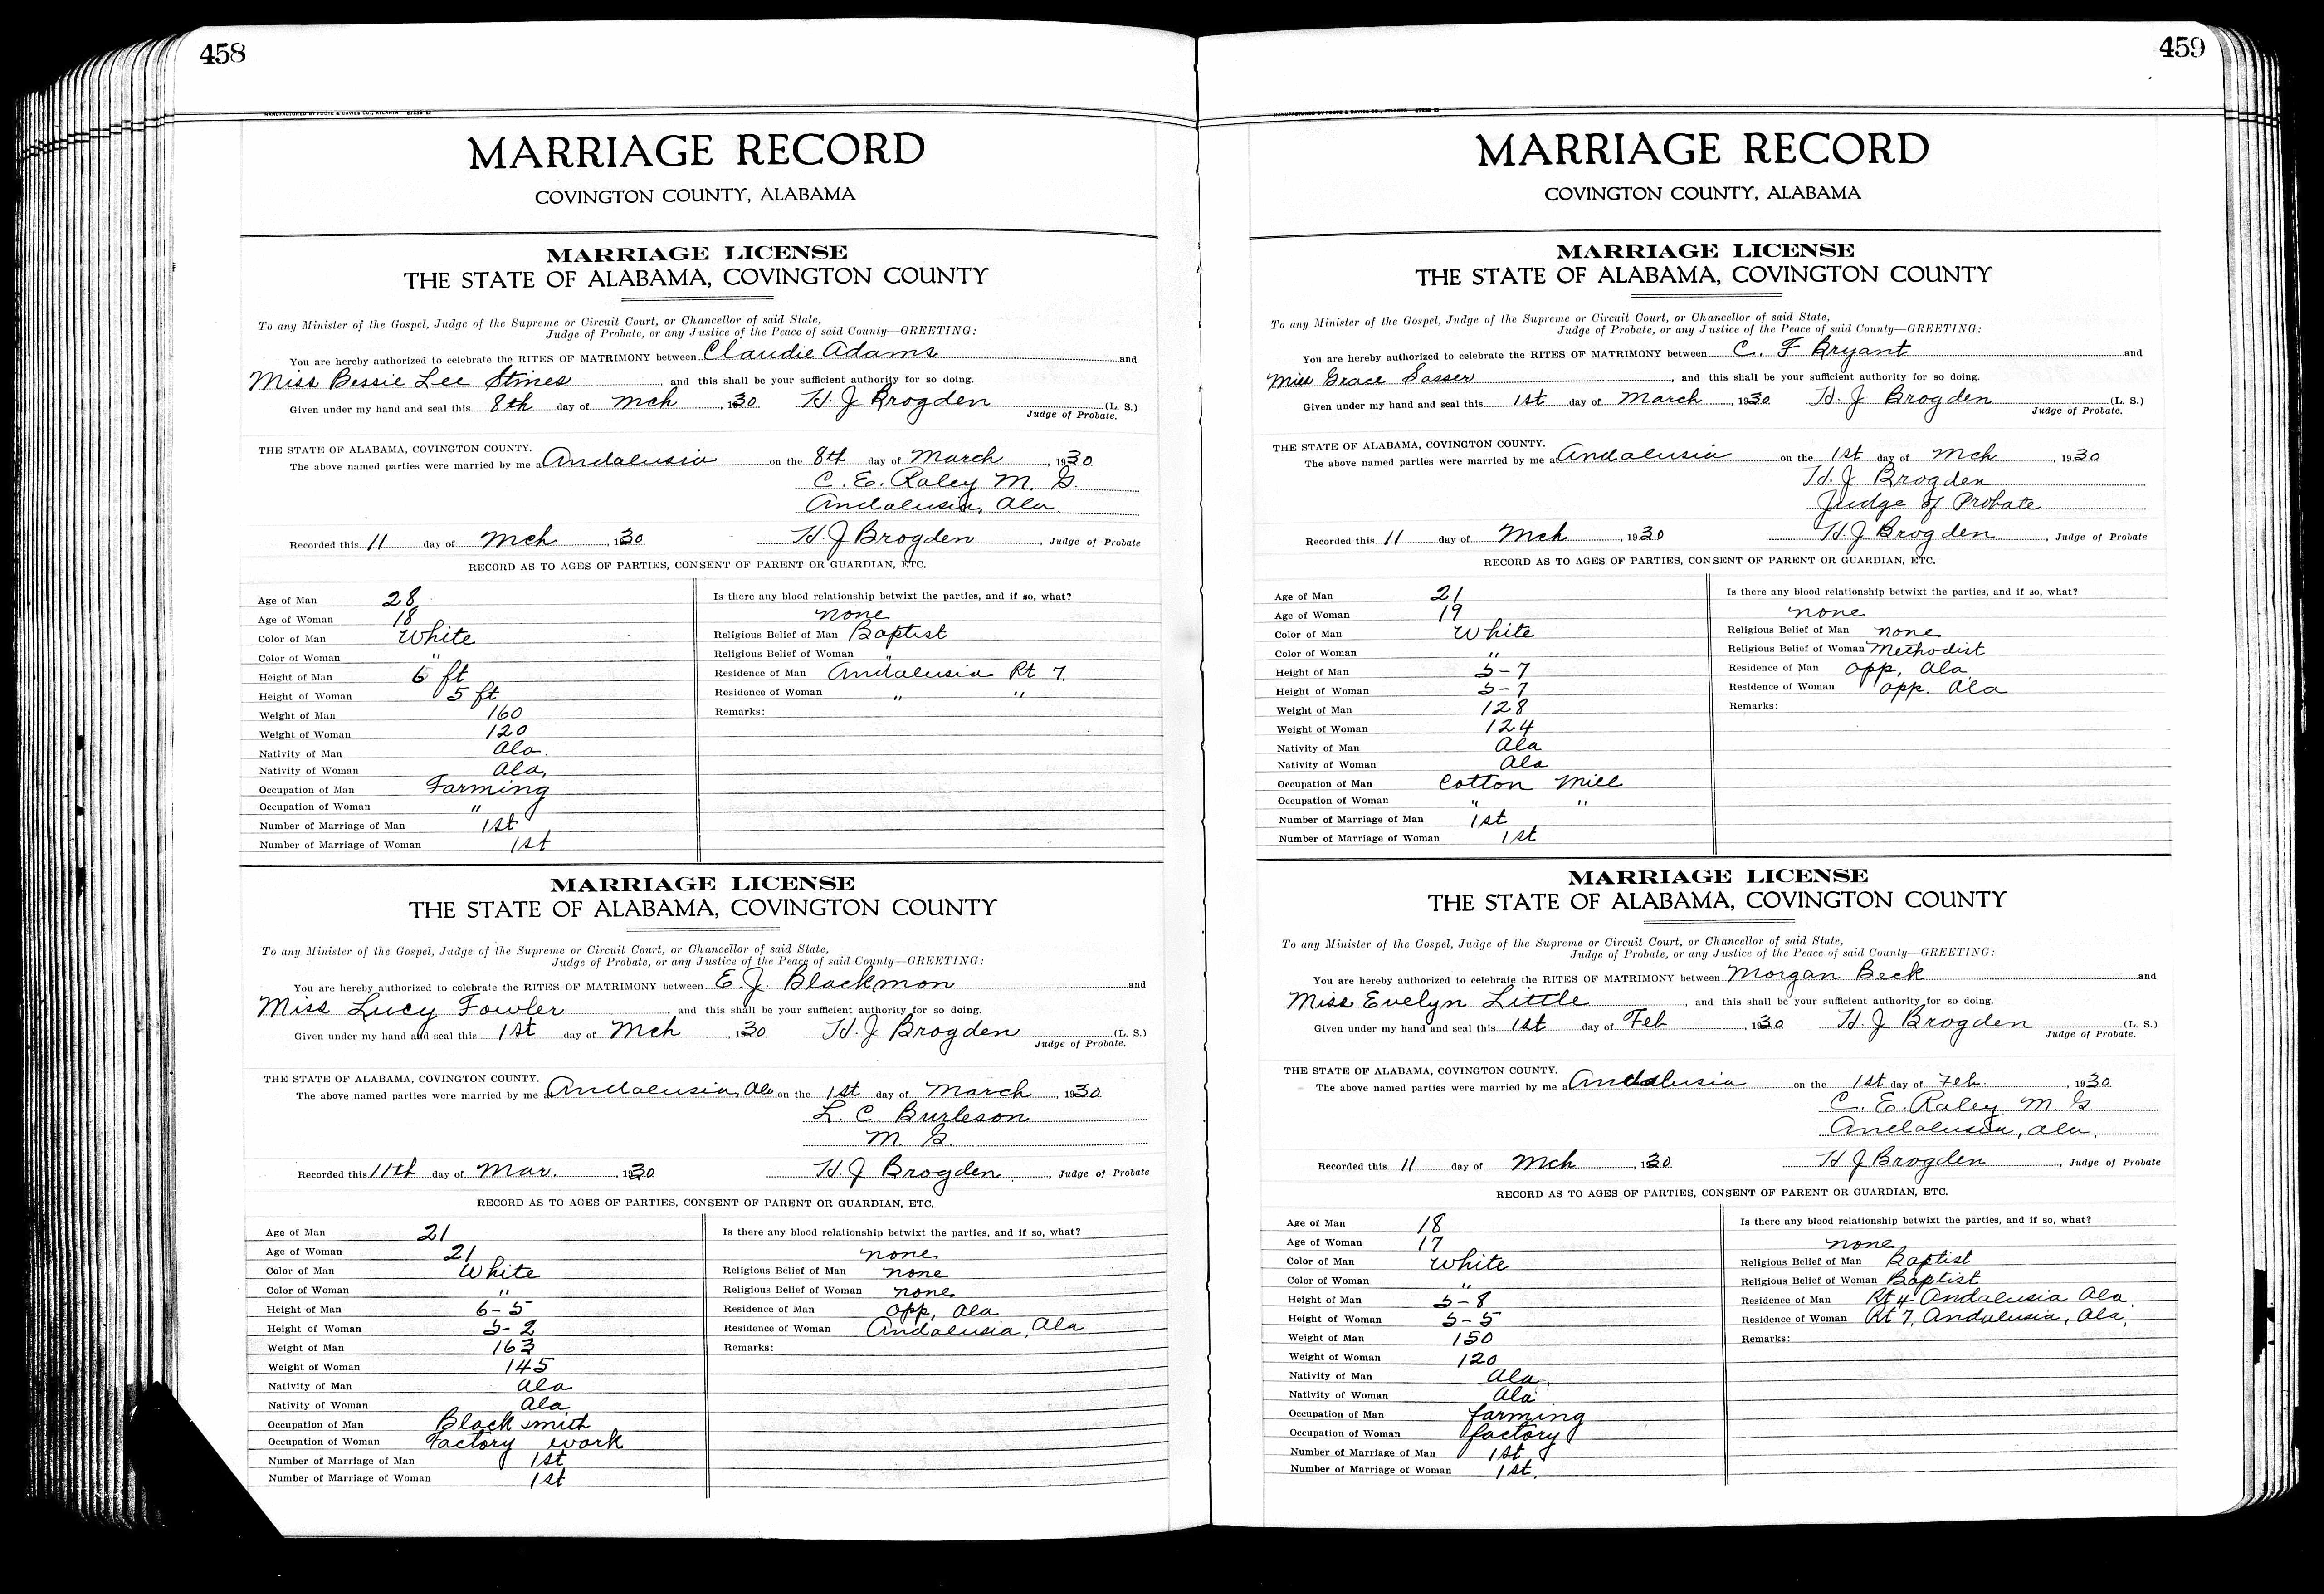 458
MANUFACTURED BY FOOTE & DAVIES CO., ATLANTA
MARRIAGE RECORD
COVINGTON COUNTY, ALABAMA
MARRIAGE LICENSE
THE STATE OF ALABAMA, COVINGTON COUNTY
To any Minister of the Gospel, Judge of the Supreme or Circuit Court, or Chancellor of said State,
Judge of Probate, or any Justice of the Peace of said County—GREETING:
You are hereby authorized to celebrate the RITES OF MATRIMONY between Claudie Adams and
Miss Bessie Lee Stines, and this shall be your sufficient authority for so doing.
Given under my hand and seal this 8th day of Mch, 1930 H. J Brogden (L. S.)
Judge of Probate.
THE STATE OF ALABAMA, COVINGTON COUNTY.
The above named parties were married by me a Andalusia on the 8th day of March, 1930
C. E. Raley M. G.
Andalusia, Ala.
Recorded this 11 day of Mch, 1930 H. J Brogden, Judge of Probate
RECORD AS TO AGES OF PARTIES, CONSENT OF PARENT OR GUARDIAN, ETC.
Age of Man 28
Age of Woman 18
Color of Man White
Color of Woman "
Height of Man 6 ft
Height of Woman 5 ft
Weight of Man 160
Weight of Woman 120
Nativity of Man Ala.
Nativity of Woman Ala,
Occupation of Man Farming
Occupation of Woman "
Number of Marriage of Man 1st
Number of Marriage of Woman 1st
Is there any blood relationship betwixt the parties, and if so, what?
none
Religious Belief of Man Baptist
Religious Belief of Woman "
Residence of Man Andalusia Rt 7.
Residence of Woman " "
Remarks:
MARRIAGE LICENSE
THE STATE OF ALABAMA, COVINGTON COUNTY
To any Minister of the Gospel, Judge of the Supreme or Circuit Court, or Chancellor of said State,
Judge of Probate, or any Justice of the Peace of said County—GREETING:
You are hereby authorized to celebrate the RITES OF MATRIMONY between E. J. Blackmon and
Miss Lucy Fowler, and this shall be your sufficient authority for so doing.
Given under my hand and seal this 1st day of Mch, 1930 H. J Brogden (L. S.)
Judge of Probate.
THE STATE OF ALABAMA, COVINGTON COUNTY.
The above named parties were married by me a Andalusia, Ala on the 1st day of March, 1930
L. C. Burleson
M. G.
Recorded this 11th day of Mar., 1930 H. J Brogden, Judge of Probate
RECORD AS TO AGES OF PARTIES, CONSENT OF PARENT OR GUARDIAN, ETC.
Age of Man 21
Age of Woman 21
Color of Man White
Color of Woman "
Height of Man 6-5
Height of Woman 5-2
Weight of Man 163
Weight of Woman 145
Nativity of Man Ala
Nativity of Woman Ala
Occupation of Man Black smith
Occupation of Woman Factory work
Number of Marriage of Man 1st
Number of Marriage of Woman 1st
Is there any blood relationship betwixt the parties, and if so, what?
none
Religious Belief of Man none
Religious Belief of Woman none
Residence of Man Opp, Ala
Residence of Woman Andalusia, Ala
Remarks:
459
MANUFACTURED BY FOOTE & DAVIES CO., ATLANTA
MARRIAGE RECORD
COVINGTON COUNTY, ALABAMA
MARRIAGE LICENSE
THE STATE OF ALABAMA, COVINGTON COUNTY
To any Minister of the Gospel, Judge of the Supreme or Circuit Court, or Chancellor of said State,
Judge of Probate, or any Justice of the Peace of said County—GREETING:
You are hereby authorized to celebrate the RITES OF MATRIMONY between C. F Bryant and
Miss Grace Sasser, and this shall be your sufficient authority for so doing.
Given under my hand and seal this 1st day of March, 1930 H. J Brogden (L. S.)
Judge of Probate.
THE STATE OF ALABAMA, COVINGTON COUNTY.
The above named parties were married by me a Andalusia on the 1st day of Mch, 1930
H. J Brogden
Judge of Probate
Recorded this 11 day of Mch, 1930 H. J Brogden, Judge of Probate
RECORD AS TO AGES OF PARTIES, CONSENT OF PARENT OR GUARDIAN, ETC.
Age of Man 21
Age of Woman 19
Color of Man White
Color of Woman "
Height of Man 5-7
Height of Woman 5-7
Weight of Man 128
Weight of Woman 124
Nativity of Man Ala
Nativity of Woman Ala
Occupation of Man Cotton Mill
Occupation of Woman " "
Number of Marriage of Man 1st
Number of Marriage of Woman 1st
Is there any blood relationship betwixt the parties, and if so, what?
none
Religious Belief of Man none
Religious Belief of Woman Methodist
Residence of Man Opp, Ala.
Residence of Woman Opp. Ala
Remarks:
MARRIAGE LICENSE
THE STATE OF ALABAMA, COVINGTON COUNTY
To any Minister of the Gospel, Judge of the Supreme or Circuit Court, or Chancellor of said State,
Judge of Probate, or any Justice of the Peace of said County—GREETING:
You are hereby authorized to celebrate the RITES OF MATRIMONY between Morgan Beck and
Miss Evelyn Little, and this shall be your sufficient authority for so doing.
Given under my hand and seal this 1st day of Feb, 1930 H. J Brogden (L. S.)
Judge of Probate.
THE STATE OF ALABAMA, COVINGTON COUNTY.
The above named parties were married by me a Andalusia on the 1st day of Feb., 1930
C. E. Raley M G
Andalusia, Ala.
Recorded this 11 day of Mch, 1930 H J Brogden, Judge of Probate
RECORD AS TO AGES OF PARTIES, CONSENT OF PARENT OR GUARDIAN, ETC.
Age of Man 18
Age of Woman 17
Color of Man White
Color of Woman "
Height of Man 5-8
Height of Woman 5-5
Weight of Man 150
Weight of Woman 120
Nativity of Man Ala.
Nativity of Woman Ala
Occupation of Man farming
Occupation of Woman factory
Number of Marriage of Man 1st
Number of Marriage of Woman 1st.
Is there any blood relationship betwixt the parties, and if so, what?
none
Religious Belief of Man Baptist
Religious Belief of Woman Baptist
Residence of Man Rt 4 Andalusia Ala.
Residence of Woman Rt 7, Andalusia, Ala.
Remarks: